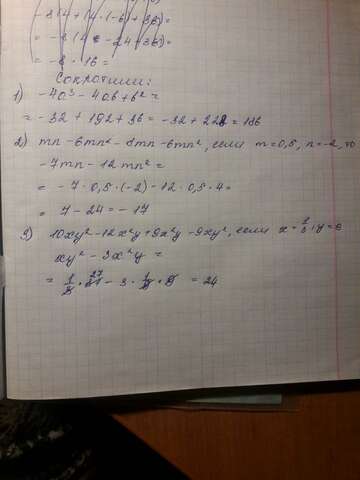 -8(4+(4·(-6)+36)=
= -8(4 - 24+36)=
= -8 · 16 =
Сократили:
1) -4a³ - 4ab+b² =
= -32 + 192 + 36 = -32 + 228 = 196
2) mn - 6mn² - 8mn - 6mn², если m=0,5, n=-2, то
-7mn - 12mn² =
= -7·0,5·(-2) - 12·0,5·4=
= 7 - 24 = - 17
3) 10xy² - 12x²y + 9x²y - 9xy², если x=1/3, y=9
xy² - 3x²y =
= 24